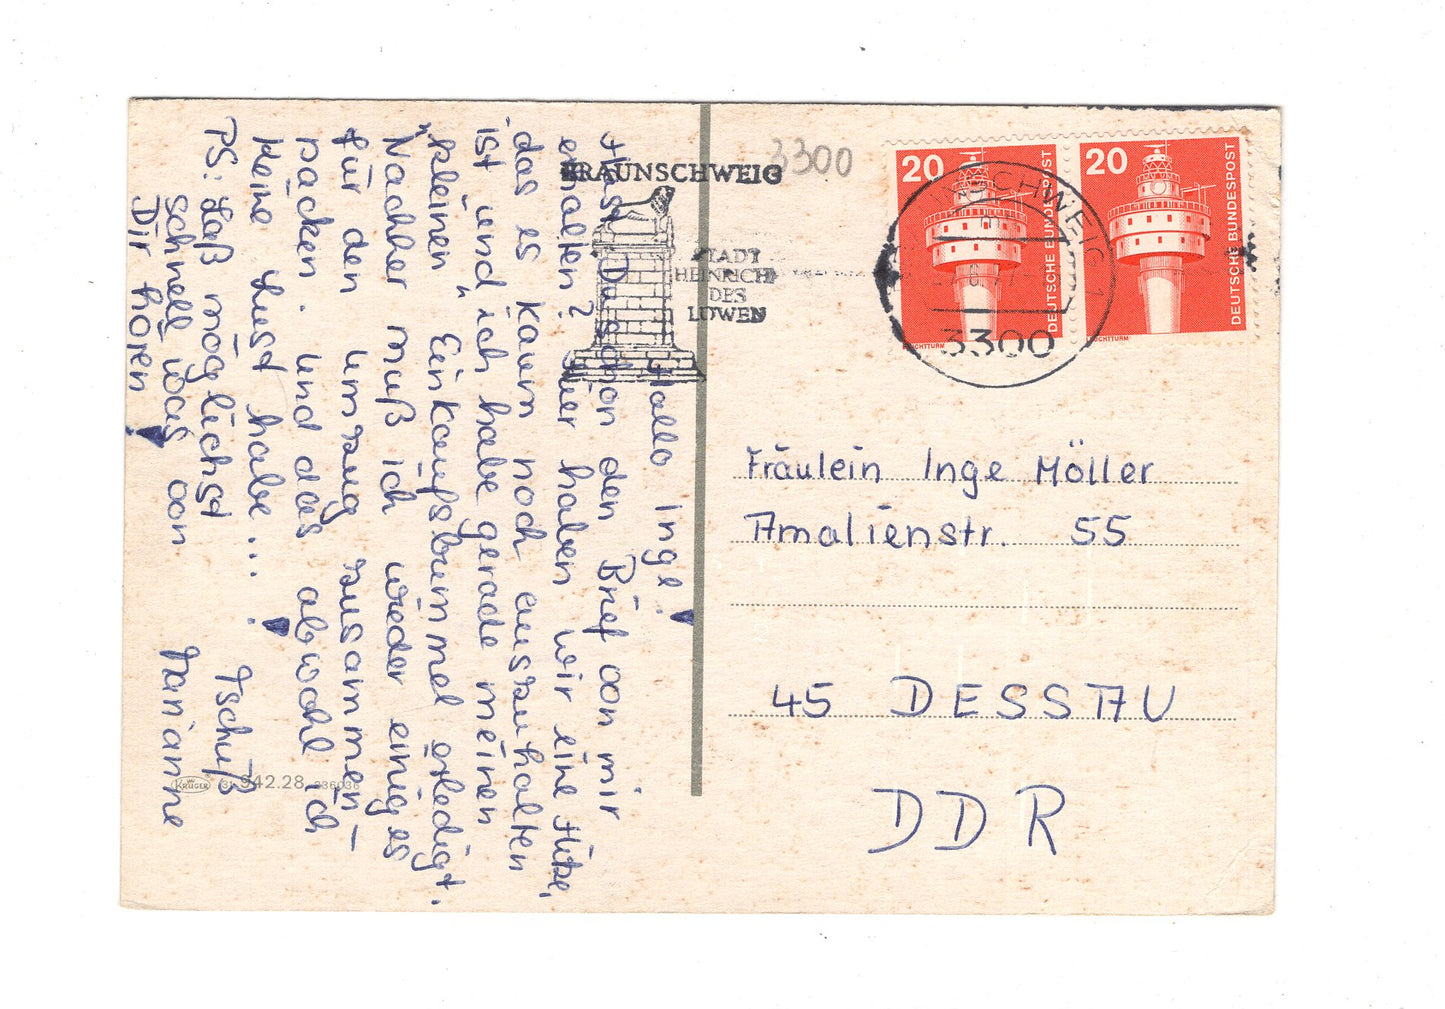 Hallo Inge!
Hast Du schon den Brief von mir
erhalten? Hier haben wir eine Hitze,
das es kaum noch auszuhalten
ist und ich habe gerade meinen
"kleinen" Einkaufsbummel erledigt.
Nachher muß ich wieder einiges
für den Umzug zusammen-
päcken. Und das obwohl ich
keine Lust habe...!
PS: Laß möglichst Tschüß
schnell was von Marianne
Dir hören!
BRAUNSCHWEIG
STADT
HEINRICHS
DES
LÖWEN
3300
20
DEUTSCHE BUNDESPOST
LEUCHTTURM
20
DEUTSCHE BUNDESPOST
LEUCHTTURM
BRAUNSCHWEIG 1
3300
Fräulein Inge Möller
Amalienstr. 55
45 DESSAU
DDR
KRÜGER 942.28